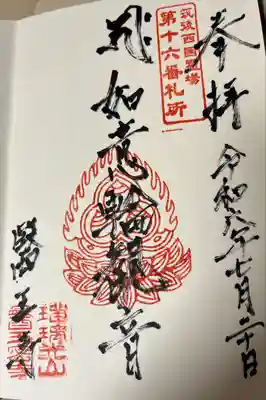 奉拝
令和六年七月二十日
筑後西国霊場
第十六番札所
如意輪観音
醫王寺